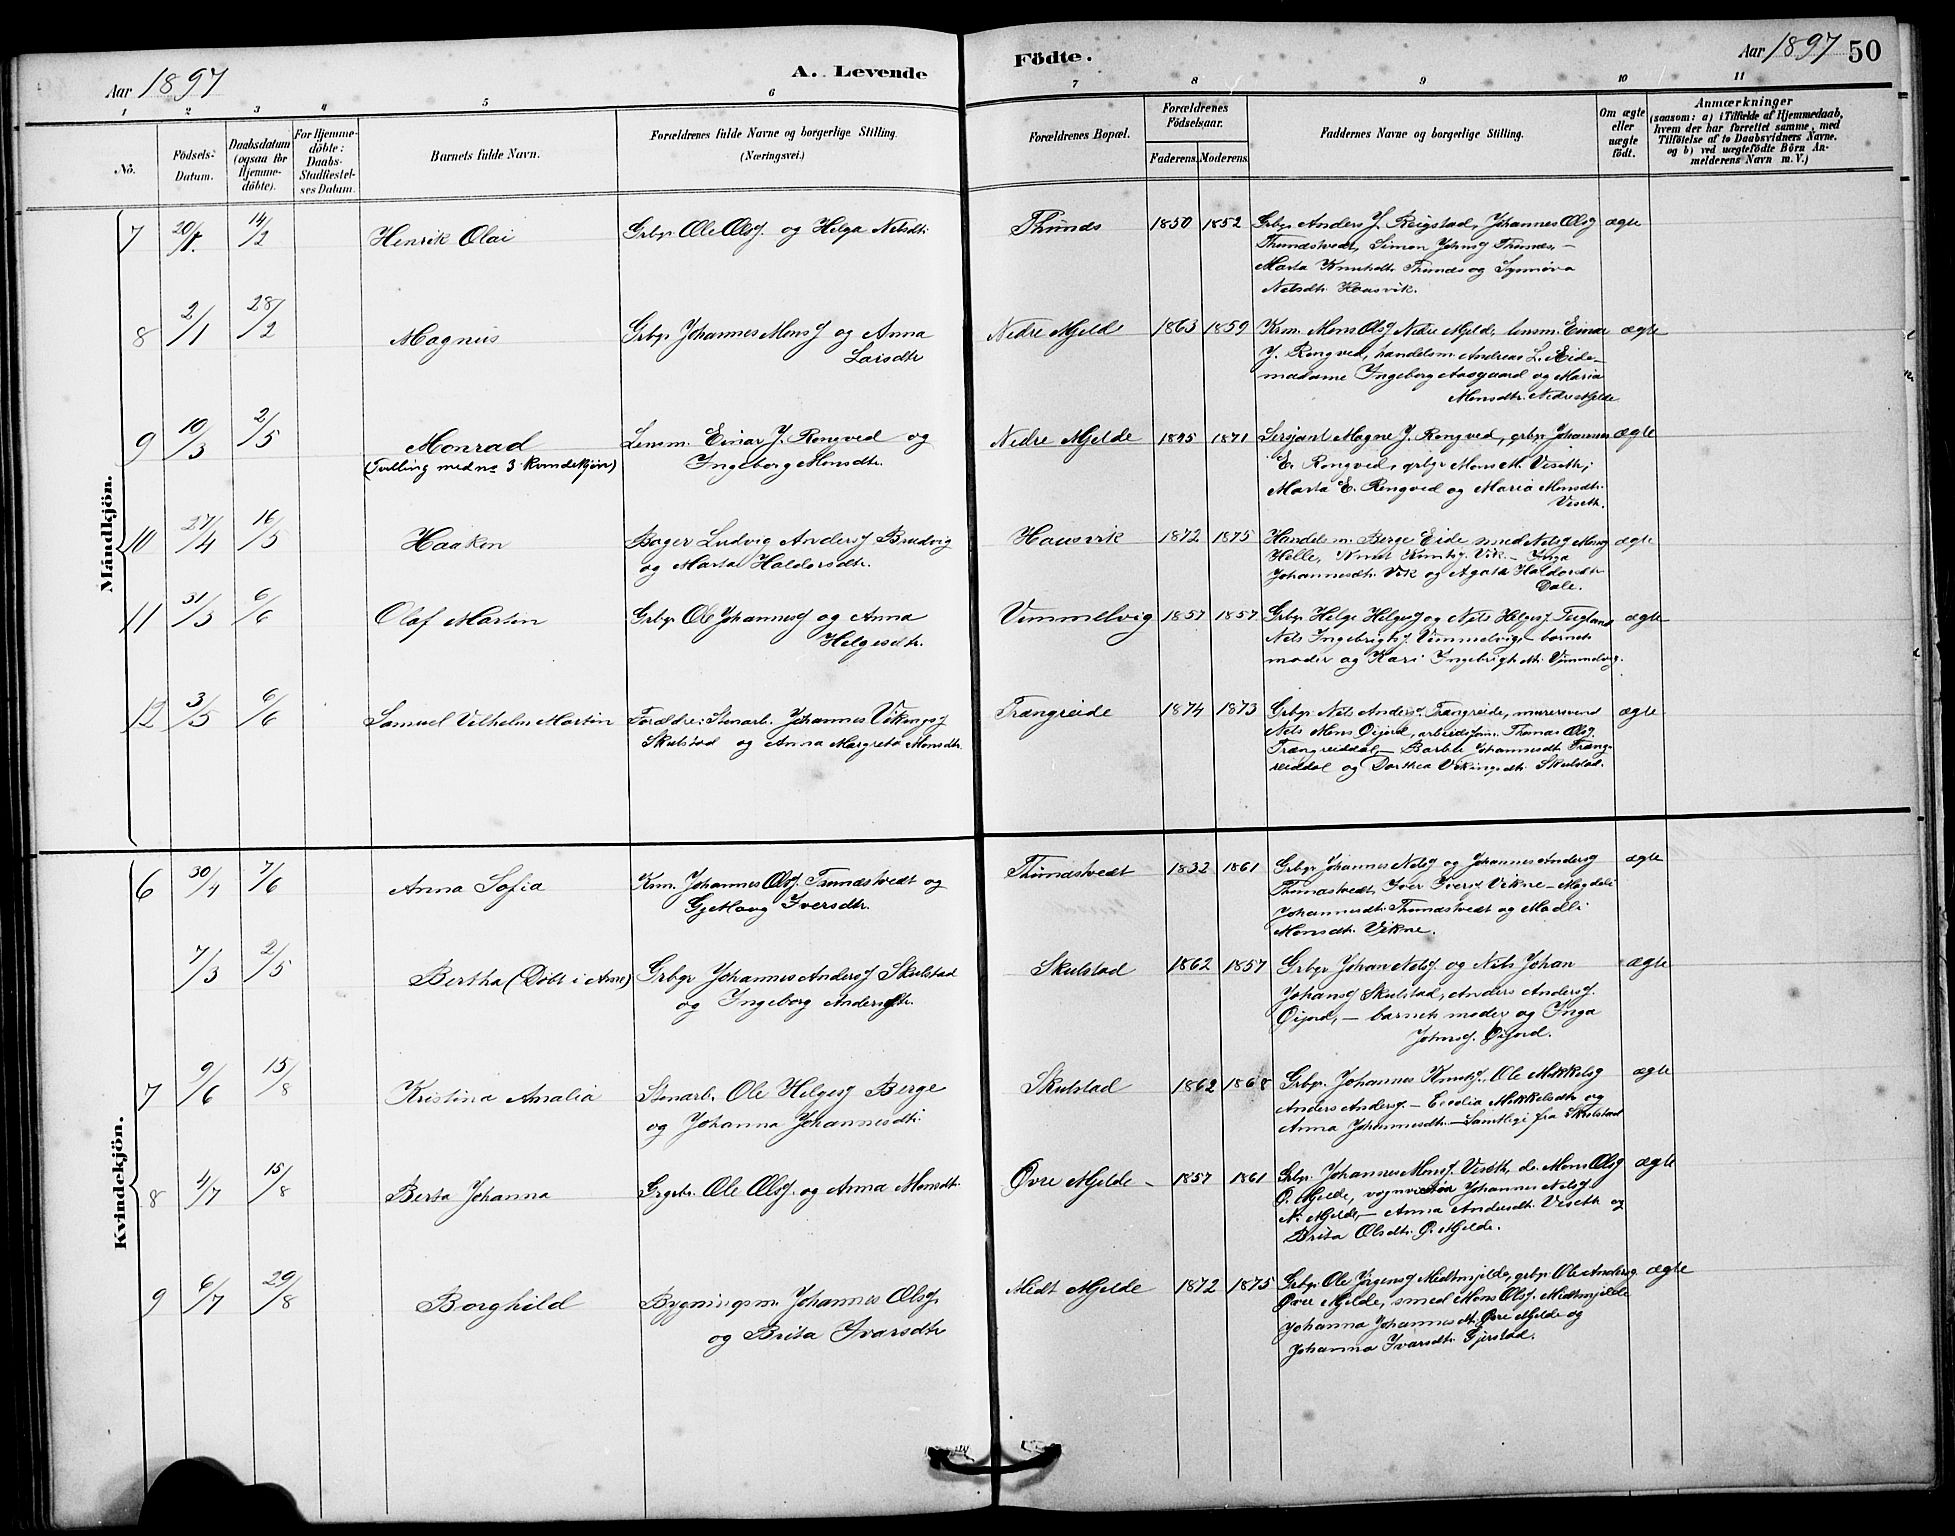 Aar 1897
A. Levende
Födte.
Aar 1897 50
1 2 3 4 5 6 7 8 9 10 11
No.
Födsels-
Datum.
Daabsdatum
(ogsaa for
Hjemme-
döbte).
For Hjemme-
döbte:
Daabs-
Stadfæstel-
ses Datum.
Barnets fulde Navn.
Forældrenes fulde Navne og borgerlige Stilling.
(Næringsvei.)
Forældrenes Bopæl.
Forældrenes
Födselsaar.
Faderens. Moderens.
Faddernes Navne og borgerlige Stilling.
Om ægte
eller
uægte
født.
Anmærkninger
(saasom: a) i Tilfælde af Hjemmedaab,
hvem der har forrettet samme, med
Tilföielse af to Daabsvidners Navne.
og b) ved uægtefödte Börn An-
melderens Navn m. V.)
Mandkjön.
7 20/1 14/2 Henrik Olai Grbgr Ole Olsf. og Helga Nelsdtr. Thunæs 1850 1852 Grbgr Anders J. Reigstad, Johannes Olsf ægte
Thunæstvedt, Simon Johnsf Thunæs, –
Marta Knutsdtr. Thunæs og Synnöva
Nelsdtr. Hausvik.
8 2/1 28/2 Magnus Grbgr Johannes Monsf og Anna
Larsdtr Nedre Mjelde 1863 1859 Krm. Mons Olsf Nedre Mjelde, lensm. Einar ægte
J. Rongved, handelsm. Andreas L. Eide –
madame Ingeborg Aasgaard og Maria
Monsdtr. Nedre Mjelde
9 10/3 2/5 Monrad
(Tvilling med no 3 kvindekjön) Lensm. Einar J. Rongved og
Ingeborg Monsdtr. Nedre Mjelde 1871 Sersjant Magne J. Rongved, grbgr Johannes ægte
E. Rongved, grbgr Mons M. Viseth,
Marta E. Rongved og Maria Monsdtr.
Viseth.
10 27/4 16/5 Haakon Bager Ludvig Andersf Brudvig
og Marta Haldorsdtr. Hausvik 1872 1875 Handelsm. Berge Eide smed Nels Monsf ægte
Helle, Knut Knutsf. Vik – Inga
Johannesdtr. Vik og Agata Haldorsdtr
Dale.
11 31/3 6/6 Olaf Martin Grbgr Ole Johannesf og Anna
Helgesdtr. Vimmelvig 1857 1857 Grbgr Helge Helgesf og Nels Helgesf. ægte
Nels Ingebrigtsf. Vimmelvig, – barnets
moder og Kari Ingebrigtsdtr. Vimmelvig.
12 3/5 6/6 Samuel Vilhelm Martin Forældre: Stenarb. Johannes Vikingsf
Skulstad og Anna Margreta Monsdtr. Trængreide 1874 1873 Grbgr. Nels Andersf. Trængreide, murersvend ægte
Nels Mons Öijord, arbeidsfom. Thomas Olsf.
Trængreiddal, – Barbla Johannesdtr Træng-
reiddal og Dorthea Vikingsdtr. Skulstad.
Kvindekjön.
6 30/4 7/6 Anna Sofia Krm. Johannes Olsf. Tunæstvedt og
Iversdtr. Thunæstvedt 1832 1861 Grbgr Johannes Nelsf og Johannes Andersf ægte
Thunæstvedt, Iver Iversf Vikne – Magdeli
Johannesdtr. Thunæstvedt og Madli
Monsdtr. Vikne.
7/3 2/5 Bertha (Döbt i Arne) Grbgr Johannes Andersf Skulstad
og Ingeborg Andersdtr. Skulstad 1862 1857 Grbgr Johan Nelsf. og Nels Johan ægte
Johansf Skulstad, Anders Andersf.
Öijord, – barnets moder og Inga
Johnsf. Öijord.
7 9/6 15/8 Kristina Amalia Stenarb. Ole Helgesf Berge
og Johanna Johannesdtr. Skulstad 1862 1868 Grbgr. Johannes Knutsf. Ole Mikkelsf ægte
Anders Andersf. – Mikkelsdtr og
Anna Johannesdtr. – Samtlige fra Skulstad
8 4/7 15/8 Berta Johanna Grgbr. Ole Olsf. og Anna Monsdtr. Övre Mjelde – 1857 1861 Grbgr. Johannes Monsf. Viseth, do. Mons Olsf ægte
Ö. Mjelde, Johannes Nelsf
N. Mjelde, – Anna Andersdtr. Viseth og
Brita Olsdtr. Ö. Mjelde.
9 6/7 29/8 Borghild Bygningsm. Johannes Olsf.
og Brita Ivarsdtr Midt Mjelde 1872 1875 Grbgr. Ole Jörgensf Midtmjelde, grbgr. Ole Andersf ægte
Övre Mjelde, smed Mons Olsf. Midtmjelde
Johanna Johannesdtr. Övre Mjelde og
Johanna Ivarsdtr. Gjerstad.